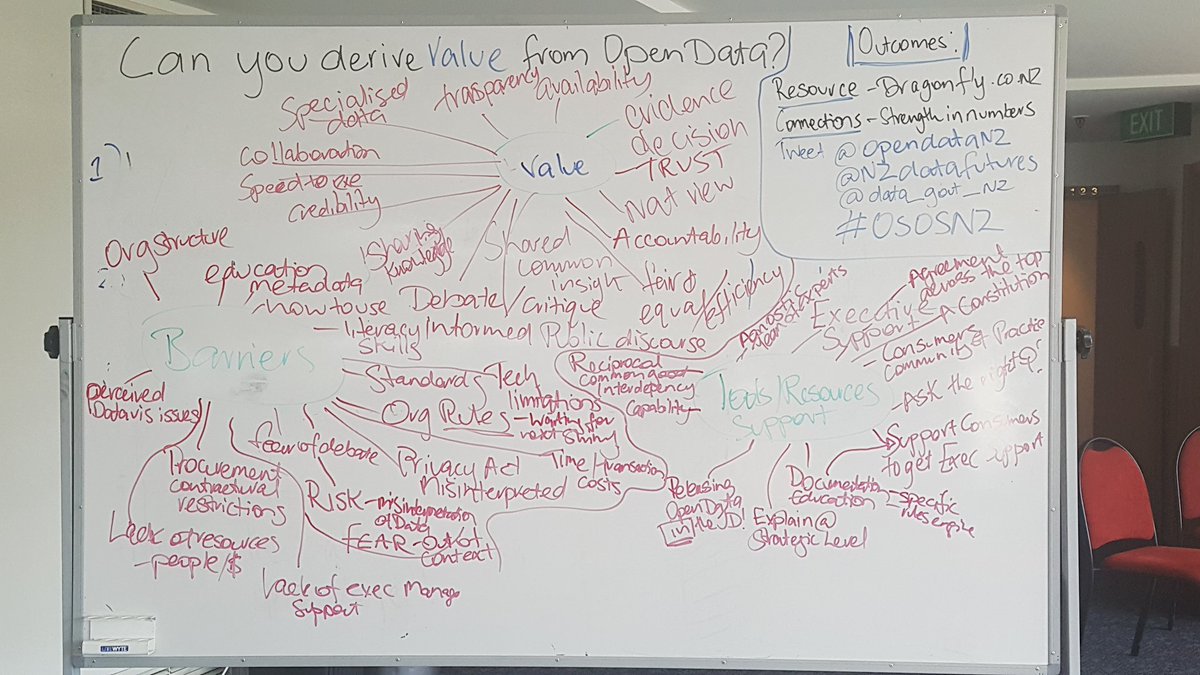 Can you derive Value from OpenData?
Outcomes:
Resource - Dragonfly.co.nz
Connections - Strength in numbers
Tweet @opendataNZ
@NZdatafutures
@data_govt_NZ
#OSOSNZ
EXIT
1 2 3
1
2
Value
Specialised
data
transparency
availability
evidence
decision
TRUST
Nat view
Accountability
fair &
equal/efficiency
Collaboration
Speed to exe
credibility
Sharing
Knowledge
Shared
common
insight
Debate/critique
informed Public discourse
Barriers
Org structure
education
metadata
how to use
- literacy
skills
Standards
Tech
limitations
- waiting for
next shiny
Org Rules
Time/transaction
costs
Privacy Act
Misinterpreted
fear of debate
RISK - misinterpretation
of Data
FEAR - Out of
Context
perceived
Data vis issues
Procurement
contractural
restrictions
Lack of resources
- people/$
Lack of exec manage
Support
Tools/Resources
Support
Reciprocal
common good
interdepency
Capability
team of experts
Executive
Support
Agreement
across the top
- A Constitution
- Consumers
community of Practice
- Ask the right Q?
Support Consumers
to get Exec support
Documentation
Education
- specific
rules engine
Explain @
Strategic Level
Releasing
Open Data
in the JD!
LIVEWYTE